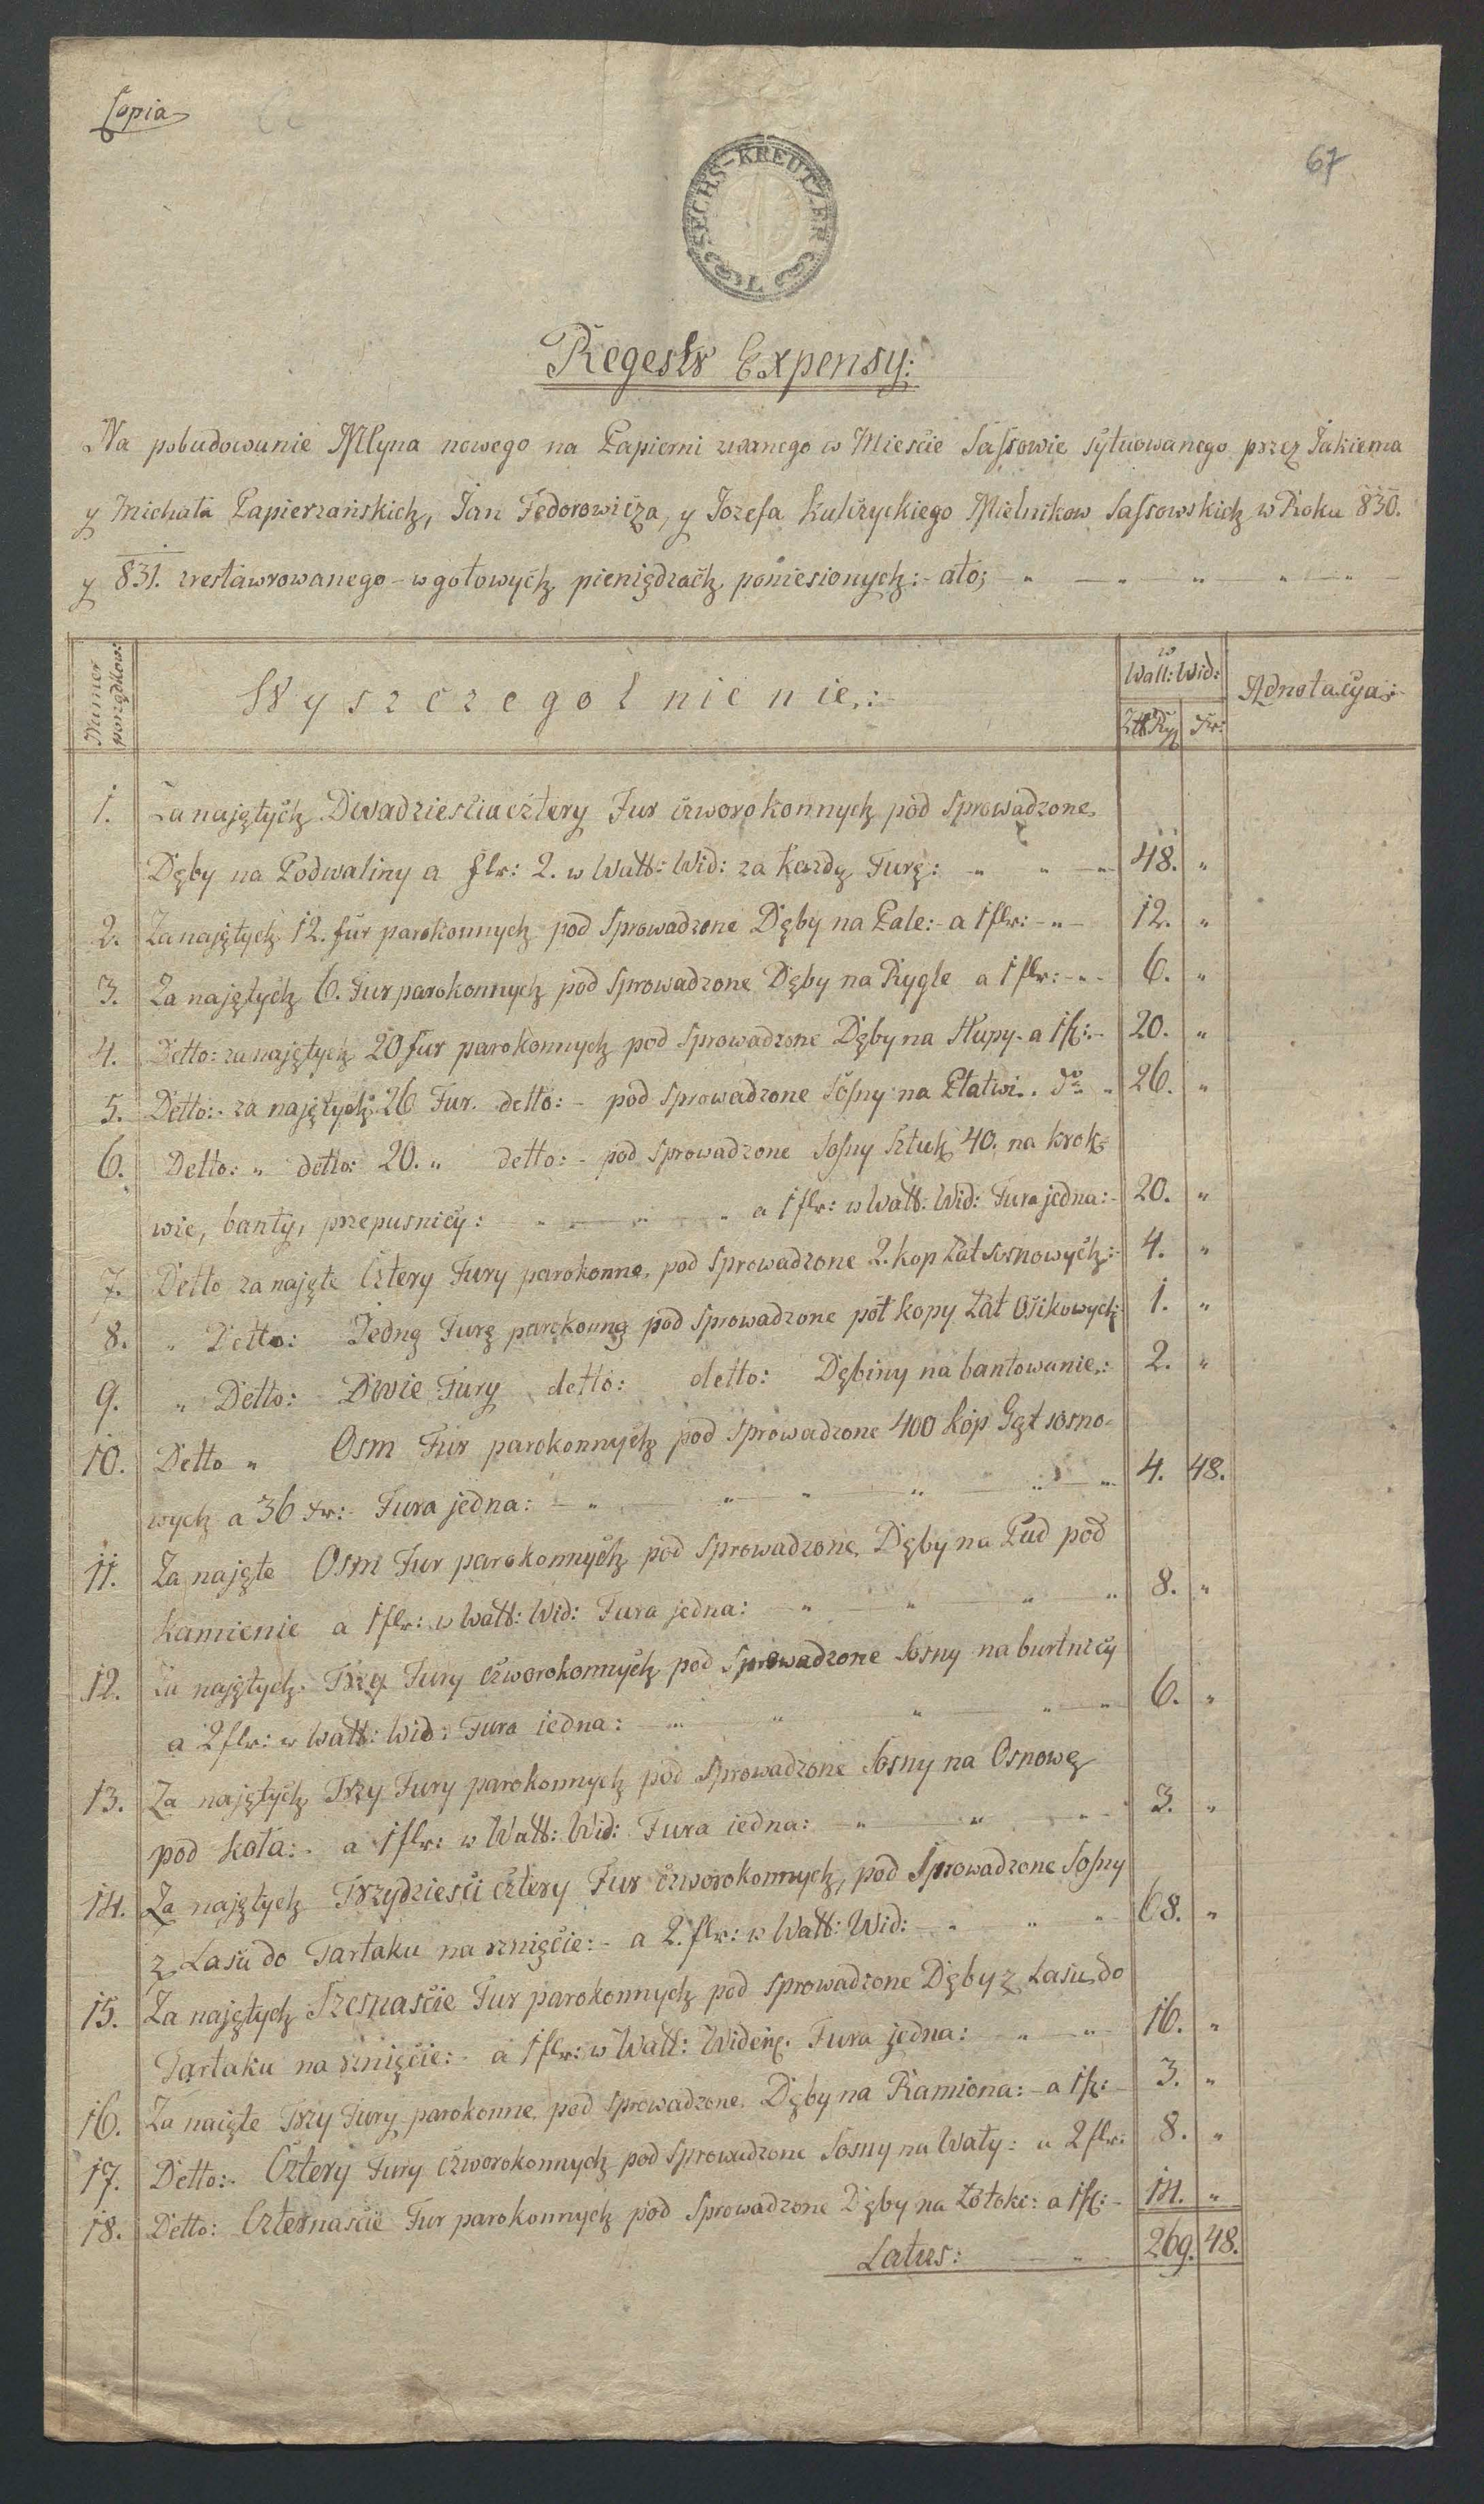 Copia
67
SECHS-KREUTZER
Regestr Expensy:
Na pobudowanie Młyna nowego na Papierni zwanego w Mieście Sassowie sytuowanego przez Jakiema
y Michała Papierzańskich, Jan Fedorowicza, y Jozefa Kulczyckiego Mielnikow Sassowskich w Roku 830.
y 831. zrestawrowanego - w gotowych pieniądzach poniesionych: - ato;
Numer porządkow:
Wyszczegolnienie.:
w Wall: Wid:
Adnotacya:
Złł Ryę
Kr:
1. Za najętych Dwadzieścia cztery Fur czworokonnych pod sprowadzone
Dęby na Podwaliny a flr: 2. w Wall: Wid: za każdą Furę: " " " 48. "
2. Za najętych 12. fur parokonnych pod sprowadzone Dęby na Pale: - a 1 flr: - " - 12. "
3. Za najętych 6. Fur parokonnych pod sprowadzone Dęby na Rygle a 1 flr: - " - 6. "
4. Detto: za najętych 20 fur parokonnych pod sprowadzone Dęby na Słupy - a 1 fl: - 20. "
5. Detto: - za najętych 26 Fur. detto: - pod sprowadzone Sosny na Płatwi.. do " 26. "
6. Detto: " detto: 20. " detto: - pod sprowadzone Sosny Sztuk 40. na krok=
wie, banty, przepusnicy: " " " a 1 flr: w Wall: Wid: Fura jedna: - 20. "
7. Detto za najęte Cztery Fury parokonne, pod sprowadzone 2. kop Łat sosnowych: - 4. "
8. " Detto: Jedną Furę parokonną pod sprowadzone poł kopy Łat Osikowych: 1. "
9. " Detto: Dwie Fury detto: detto: Dębiny na bantowanie.: 2. "
10. Detto " Osm Fur parokonnych pod sprowadzone 400 kop Gąt sosno=
wych a 36 kr: - Fura jedna: - " " " " " " 4. 48.
11. Za najęte Osm Fur parokonnych pod sprowadzone Dęby na Pud pod
kamienie a 1 flr: w Wall: Wid: Fura jedna: " " " " 8. "
12. Za najętych Trzy Fury czworokonnych pod sprowadzone Sosny na burtnicy
a 2 flr: w Wall: Wid: Fura iedna: " " " " " 6. "
13. Za najętych Trzy Fury parokonnych pod sprowadzone Sosny na Osnowę
pod koła: - a 1 flr: w Wall: Wid: Fura iedna: " " " 3. "
14. Za najętych Trzydzieści cztery Fur czworokonnych, pod sprowadzone Sosny
z Lasu do Tartaku na rznięcie: - a 2. flr: w Wall: Wid: " " " 68. "
15. Za najętych Szesnaście Fur parokonnych pod sprowadzone Dęby z Lasu do
Tartaku na rznięcie: - a 1 flr: w Wall: Fura jedna: " " 16. "
16. Za naięte Trzy Fury parokonne, pod sprowadzone Dęby na Ramiona: - a 1 fl: - 3. "
17. Detto: - Cztery Fury czworokonnych pod sprowadzone Sosny na Wały: a 2 flr: 8. "
18. Detto: Czternaście Fur parokonnych pod sprowadzone Dęby na Łotoki: a 1 fl: - 14. "
Latus: " 269. 48.